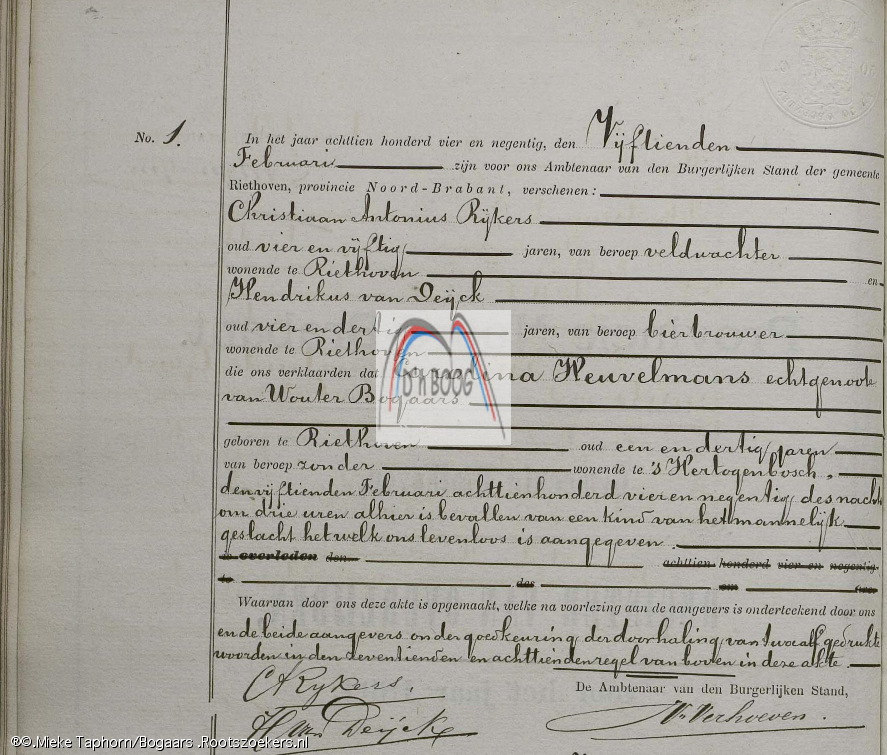 No. 1.
In het jaar achttien honderd vier en negentig, den Vijftienden
Februari zijn voor ons Ambtenaar van den Burgerlijken Stand der gemeente
Riethoven, provincie Noord-Brabant, verschenen:
Christiaan Antonius Rijkers
oud vier en vijftig jaren, van beroep veldwachter
wonende te Riethoven en
Hendrikus van Deijck
oud vier en dertig jaren, van beroep bierbrouwer
wonende te Riethoven
die ons verklaarden dat Heuvelmans echtgenoote
van Wouter Bogaars
D'N BOOG
geboren te Riethoven oud een en dertig jaren
van beroep zonder wonende te 's Hertogenbosch,
den vijftienden Februari achttienhonderd vier en negentig des nachts
om drie uren alhier is bevallen van een kind van het mannelijk
geslacht hetwelk ons levenloos is aangegeven.
is overleden den achttien honderd vier en negentig
te des om ure
Waarvan door ons deze akte is opgemaakt, welke na voorlezing aan de aangevers is onderteekend door ons
en de beide aangevers onder goedkeuring der doorhaling van twaalf gedrukte
woorden in den zeventienden en achttienden regel van boven in deze akte.
CARykers.
De Ambtenaar van den Burgerlijken Stand,
H van Deijck
Verhoeven.
®©.Mieke Taphorn/Bogaars .Rootszoekers.nl